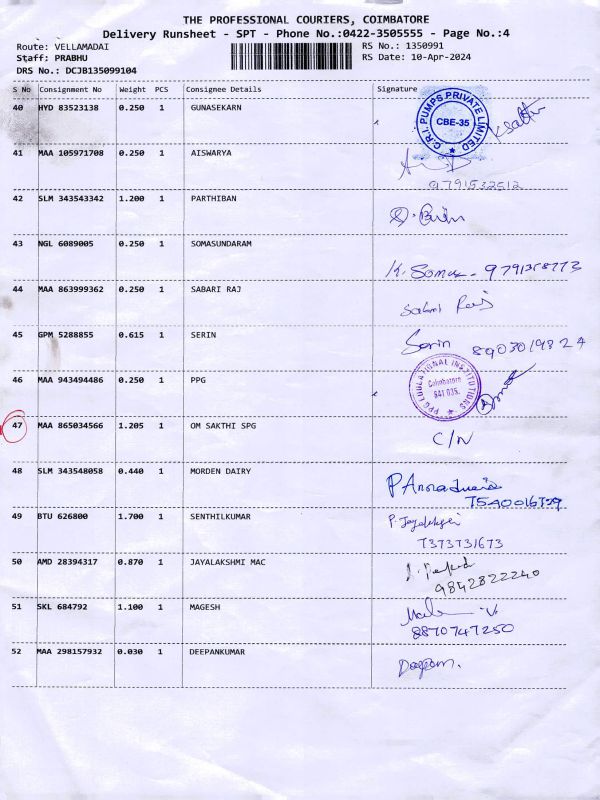 THE PROFESSIONAL COURIERS, COIMBATORE
Delivery Runsheet - SPT - Phone No.:0422-3505555 - Page No.:4
Route: VELLAMADAI RS No.: 1350991
Staff: PRABHU RS Date: 10-Apr-2024
DRS No.: DCJB135099104
S No Consignment No Weight PCS Consignee Details Signature
40 HYD 83523138 0.250 1 GUNASEKARN
C.R.I. PUMPS PRIVATE LIMITED CBE-35
41 MAA 105971708 0.250 1 AISWARYA
9791532512
42 SLM 343543342 1.200 1 PARTHIBAN
43 NGL 6089005 0.250 1 SOMASUNDARAM
K. Somas - 9791358773
44 MAA 863999362 0.250 1 SABARI RAJ Sabari Raj
45 GPM 5288855 0.615 1 SERIN Serin 8903019824
46 MAA 943494486 0.250 1 PPG
Coimbatore 641 035.
47 MAA 865034566 1.205 1 OM SAKTHI SPG C/N
48 SLM 343548058 0.440 1 MORDEN DAIRY
49 BTU 626800 1.700 1 SENTHILKUMAR
7373731673
50 AMD 28394317 0.870 1 JAYALAKSHMI MAC
9842822240
51 SKL 684792 1.100 1 MAGESH
8870747250
52 MAA 298157932 0.030 1 DEEPANKUMAR